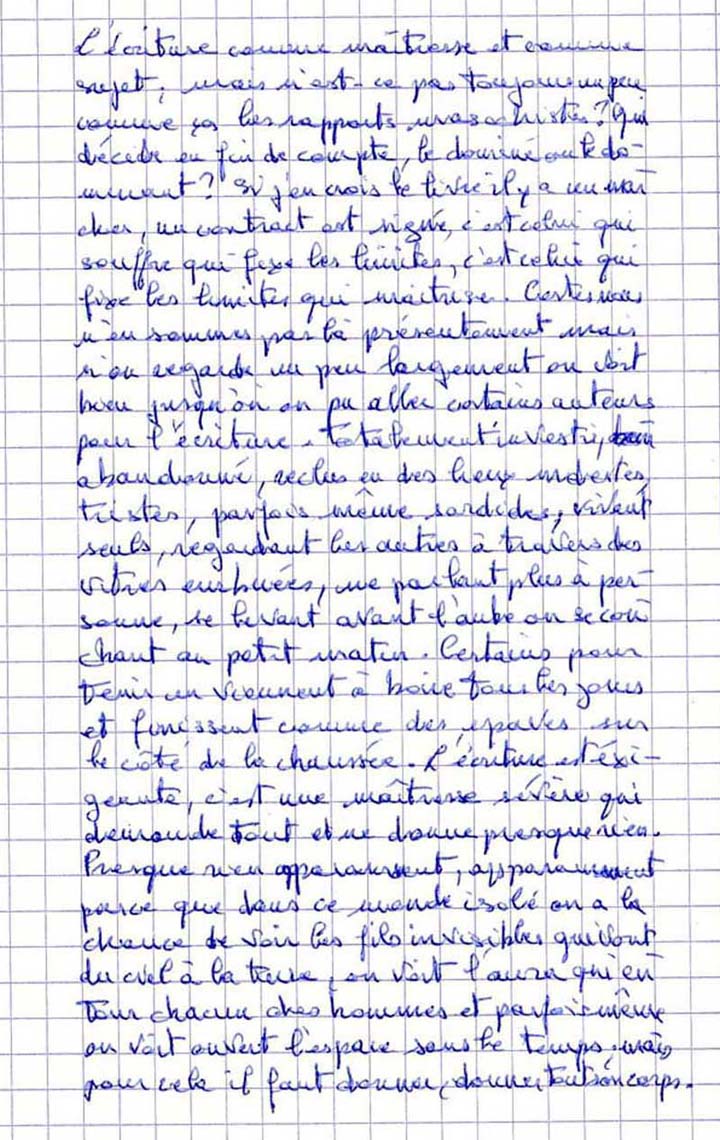 L'écriture comme maîtresse et comme
sujet, mais n'est-ce pas toujours un peu
comme ça les rapports masochistes? Qui
décide en fin de compte, le dominé ou le do-
minant? Si j'en crois le livre il y a un mar
ché, un contract est signé, c'est celui qui
souffre qui fixe les limites, c'est celui qui
fixe les limites qui maîtrise. Certes nous
n'en sommes pas là présentement mais
si on regarde un peu largement on voit
bien jusqu'où on pu aller certains auteurs
pour l'écriture. Totalement investi,
abandonné, reclus en des lieux modestes,
tristes, parfois même sordides, vivant
seuls, regardant les autres à travers des
vitres embuées, ne parlant plus à per-
sonne, se levant avant l'aube ou se cou
chant au petit matin. Certains pour
tenir en viennent à boire tous les jours
et finissent comme des épaves sur
le côté de la chaussée. L'écriture est éxi-
geante, c'est une maîtresse sévère qui
demande tout et ne donne presque rien.
Presque rien apparemment, apparemment
parce que dans ce monde isolé on a la
chance de voir les fils invisibles qui vont
du ciel à la terre, on voit l'aura qui en
tour chacun des hommes et parfois même
on voit ouvert l'espace sans le temps, mais
pour cela il faut donner, donner tout son corps.